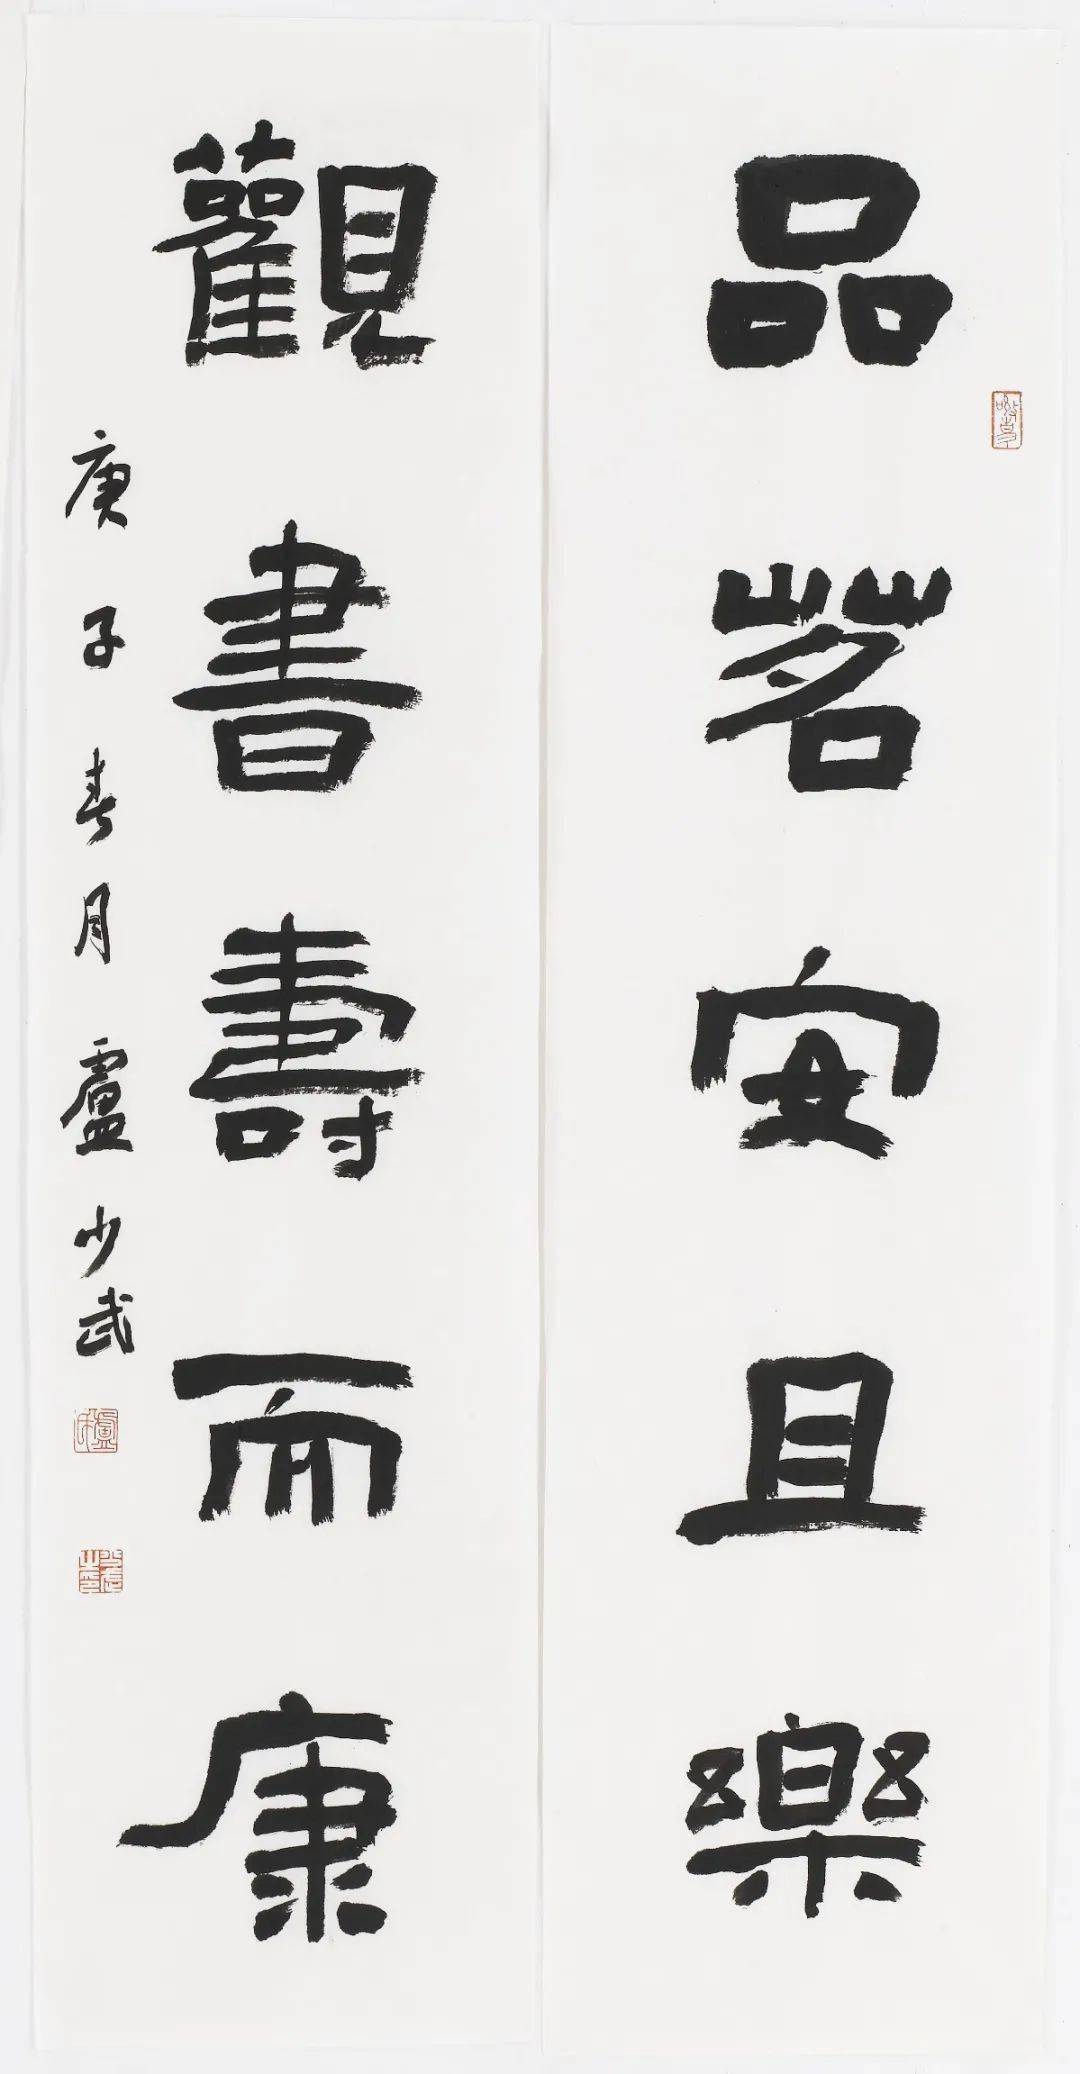 品茗安且樂
觀書壽而康
庚子春月盧少武